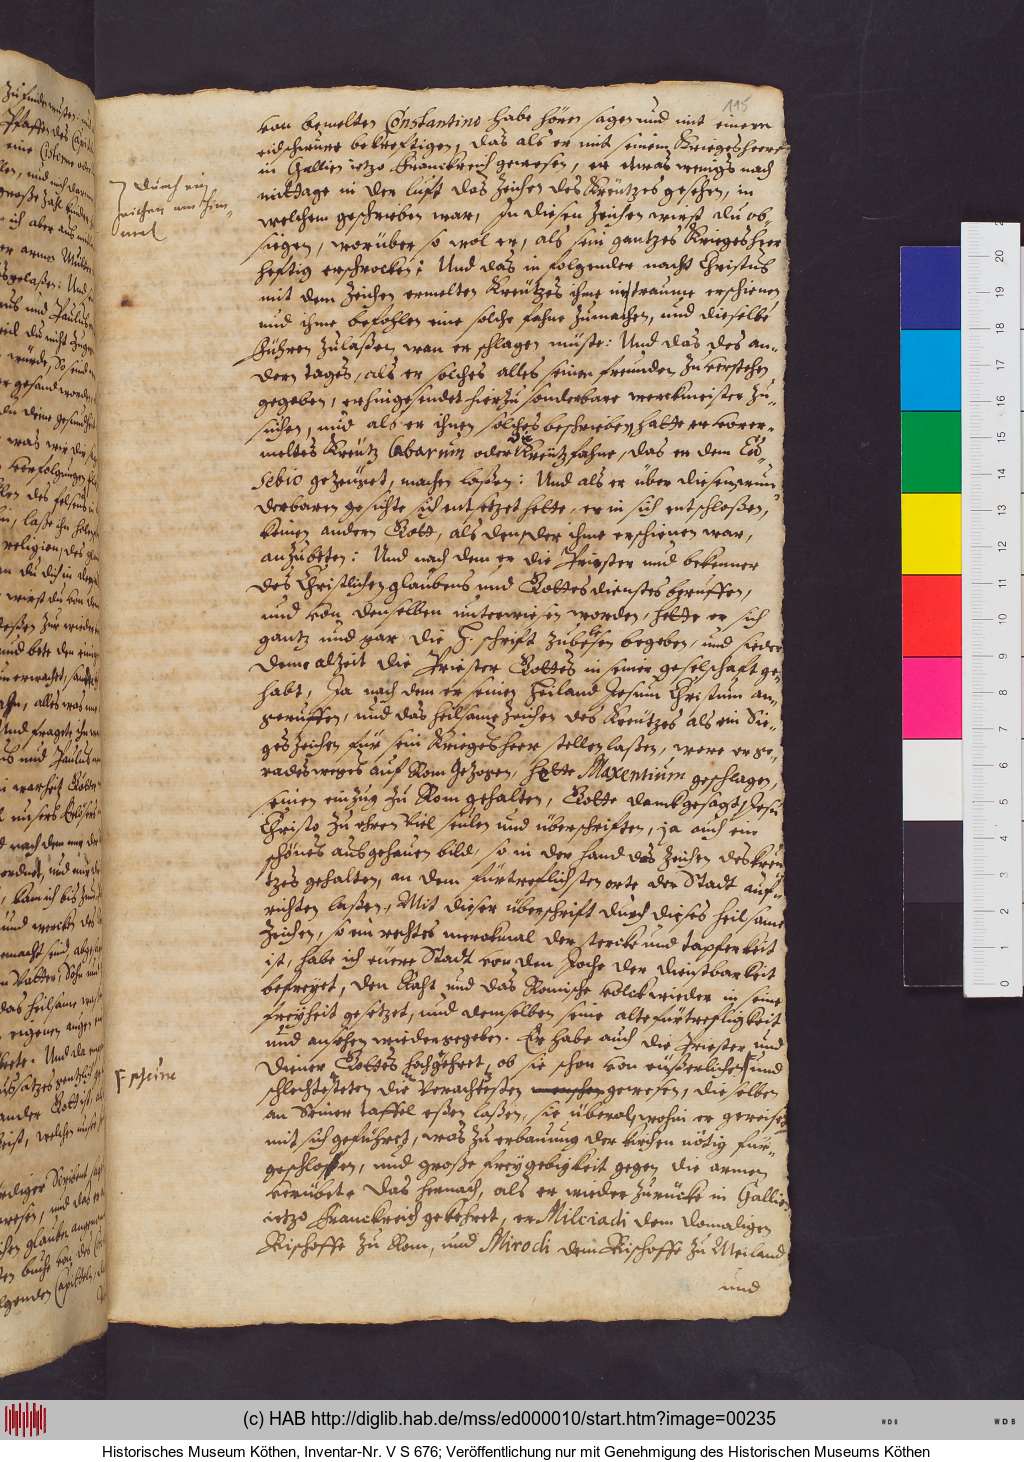 115
von bemelten Constantino habe hören sagen und mit einem
eidschwure bekreftigen, das als er mit seinem Kriegesheere
in Gallien ietzo Franckreich gewesen, er etwas wenigs nach
mittage in der luft das Zeichen des Kreützes gesehen, in
welchem geschrieben war, In diesen Zeichen wirst du ob-
siegen, worüber so wol er, als sein gantzes Kriegesheer
heftig erschrocken; Und das in folgender nacht Christus
mit dem Zeichen ermelten Kreützes ihme im traume erschienen
und ihme befohlen eine solche fahne zumachen, und dieselbe
führen zulaßen, wan er schlagen müste: Und das des an-
dern tages, als er solches alles seinen freunden zu verstehen
gegeben, er hingesendet hierzu sonderbare werckmeister zu-
suchen, und als er ihnen solches beschrieben, hatte er vorer-
meltes Kreütz Labarum oder die Kreützfahne, das er dem Eü-
sebio gezeüget, machen laßen: Und als er über diesem wun-
derbaren gesichte sich entsetzet hette, er in sich entschloßen,
keinen andern Gott, als den, der ihme erschienen war,
anzubeten: Und nach dem er die Priester und bekenner
des Christlichen glaubens und Gottesdienstes beruffen,
und von denselben unterwiesen worden, hette er sich
gantz und gar die H. schrift zulesen begeben, und sieder
deme alzeit die Priester Gottes in seiner geselschaft ge-
habt, Ja nach dem er seinen Heiland Jesum Christum an-
geruffen, und das heilsame Zeichen des Kreützes als ein Sie-
geszeichen für sein Kriegesheer stellen laßen, were er ge-
radesweges auf Rom gezogen, hette Maxentium geschlagen,
seinen einzug zu Rom gehalten, Gotte danckgesagt, Jesu
Christo zu ehren viel seulen und überschriften, ja auch ein
schönes ausgehauen bild, so in der hand das Zeichen des kreü-
tzes gehalten, an dem fürtreflichsten orte der Stadt auf-
richten laßen, Mit dieser überschrift durch dieses heilsame
Zeichen, so ein rechtes merckmal der stercke und tapferkeit
ist, habe ich eüere Stadt von dem Joche der dienstbarkeit
befreyet, den Raht und das Römische volck wieder in seine
freyheit gesetzet, und demselben seine alte fürtrefligkeit
und ansehen wiedergegeben. Er habe auch die Priester und
Diener Gottes hochgeehret, ob sie schon von eüßerlichen und
schlechtesten die Verachtesten menschen gewesen, dieselben
an Seiner taffel eßen laßen, sie überal, wohin er gereiset
mit sich geführet, was zu erbauung der kirchen nötig für-
geschloßen, und große freygebigkeit gegen die armen
verübet. Das hernach, als er wieder zurücke in Gallien
ietzo Franckreich gekehret, er Milciadi dem damaligen
Bischoffe zu Rom, und Mirocli dem Bischoffe zu Meiland
und
durch ein
Zeichen am him-
mel
scheine
(c) HAB http://diglib.hab.de/mss/ed000010/start.htm?image=00235
Historisches Museum Köthen, Inventar-Nr. V S 676; Veröffentlichung nur mit Genehmigung des Historischen Museums Köthen